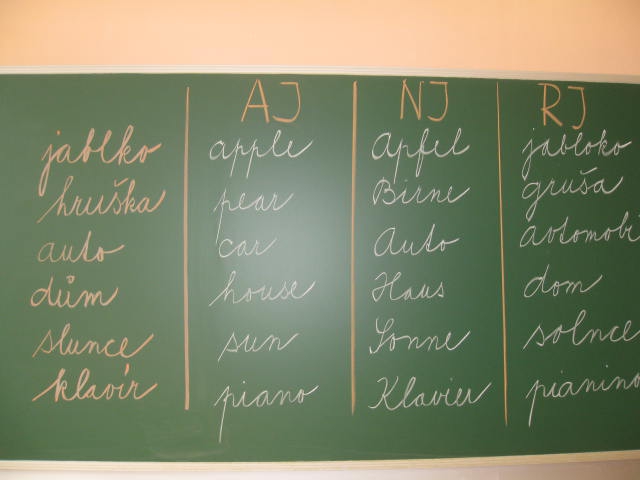 AJ NJ RJ
jablko apple Apfel jabloko
hruška pear Birne gruša
auto car Auto avtomobi
dům house Haus dom
slunce sun Sonne solnce
klavír piano Klavier pianino